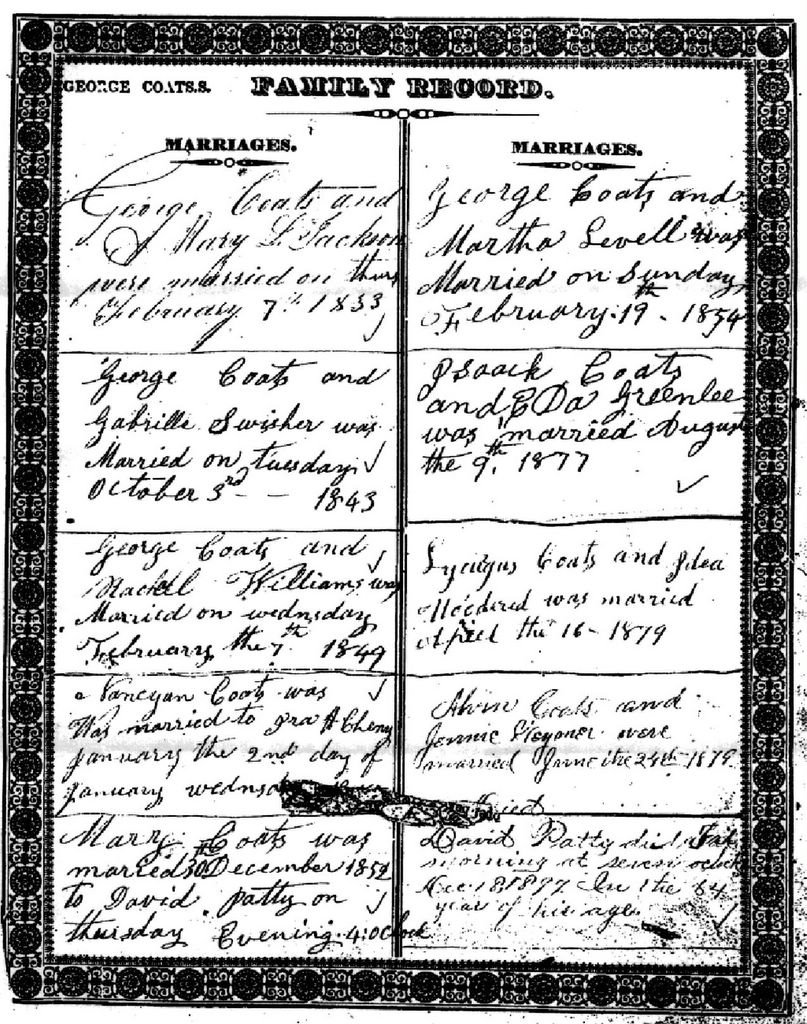 GEORGE COATS.S. FAMILY RECORD.
MARRIAGES.
George Coats and
Mary L. Jackson
were married on thurs
February 7th 1833
George Coats and
Gabrille Swisher was
Married on tuesday
October 3rd - - 1843
George Coats and
Rachel Williams was
Married on wednsday
February the 7th 1849
Nancyan Coats was
Was married to Ira A Cheny
january the 2nd day of
january
Mary Coats was
married 30 December 1852
to David patty on
thursday Evening 4 oclock
MARRIAGES.
George Coats and
Martha Levell was
Married on Sunday
February 19th 1854
Isaack Coats
and Greenlee
was married August
the 9th 1877
Coats and
was married
the 16 - 1879
Coats and
Jennie were
married June the 24th 1879
David Patty did
morning at seven oclock
1897 In the 64
year of his age